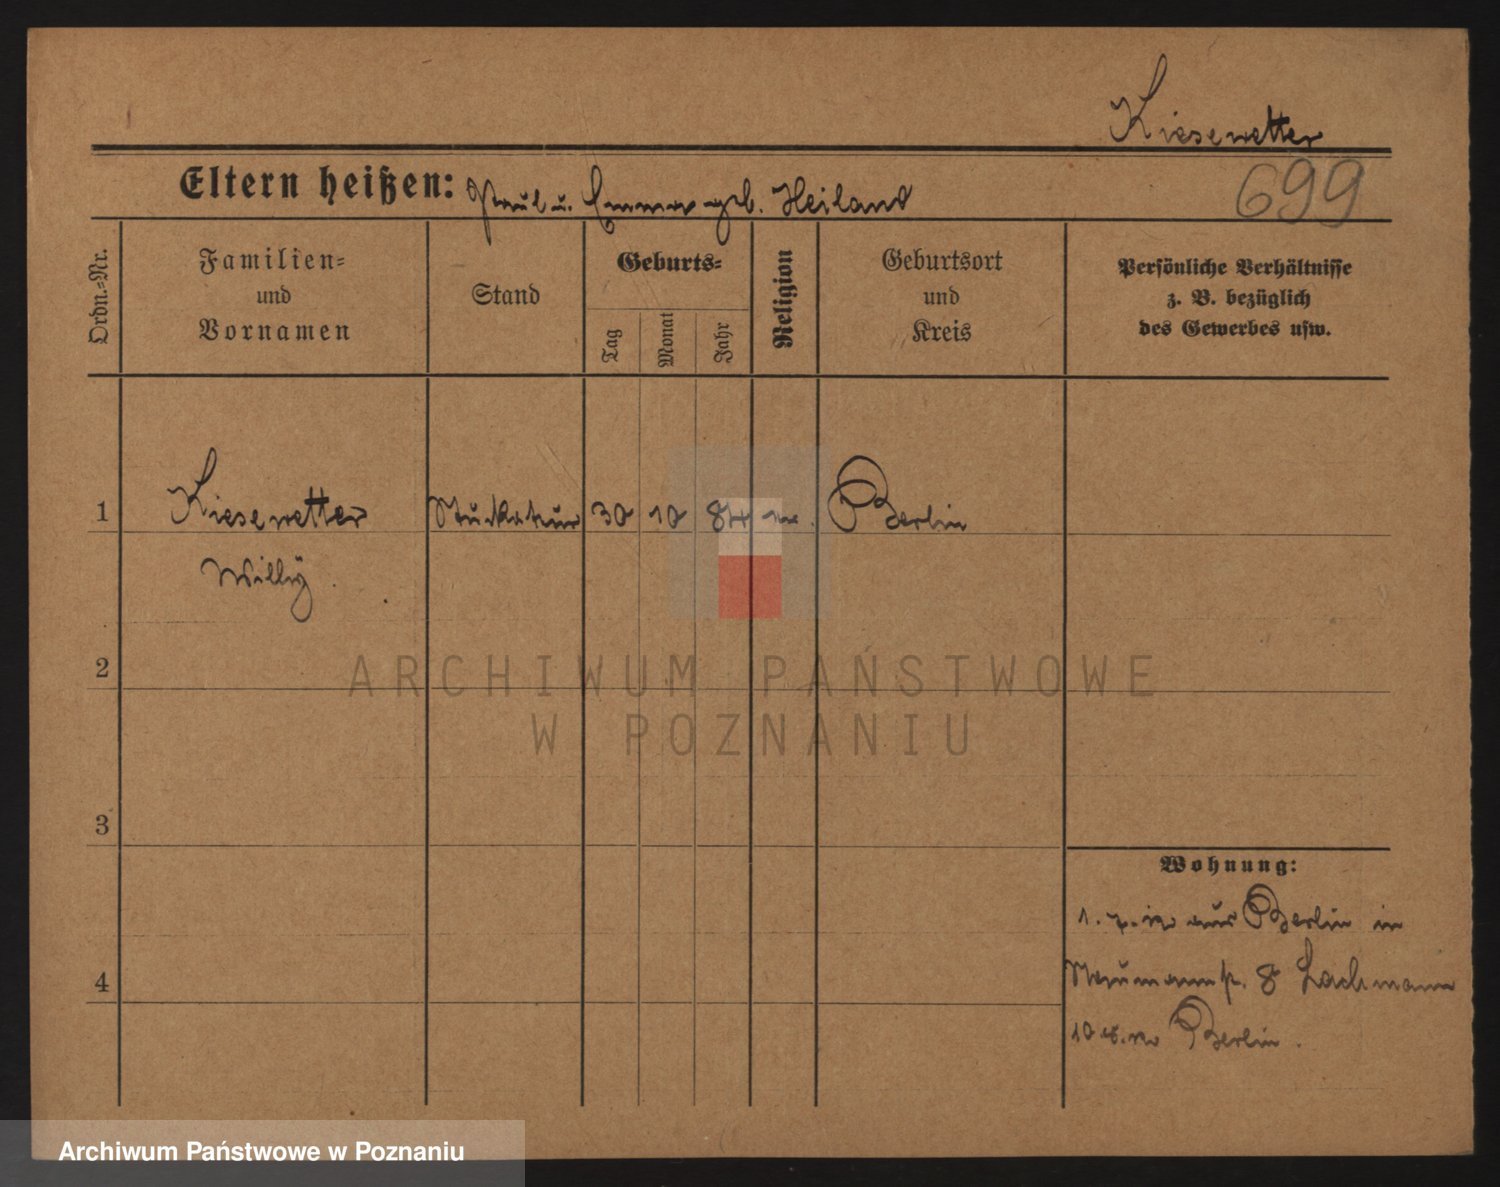 Kiesewetter
Eltern heißen: Paul u. Emma geb. Heiland
699
Ordn.-Nr.
Familien-
und
Vornamen
Stand
Geburts-
Tag
Monat
Jahr
Religion
Geburtsort
und
Kreis
Persönliche Verhältnisse
z. B. bezüglich
des Gewerbes usw.
1 Kiesewetter Stuckateur 30 10 84 Berlin
Willÿ.
2
ARCHIWUM PAŃSTWOWE
W POZNANIU
3
Wohnung:
1. 7. aus Berlin in
Naumannstr. 8 Lachmann
4
10 8. Berlin.
Archiwum Państwowe w Poznaniu